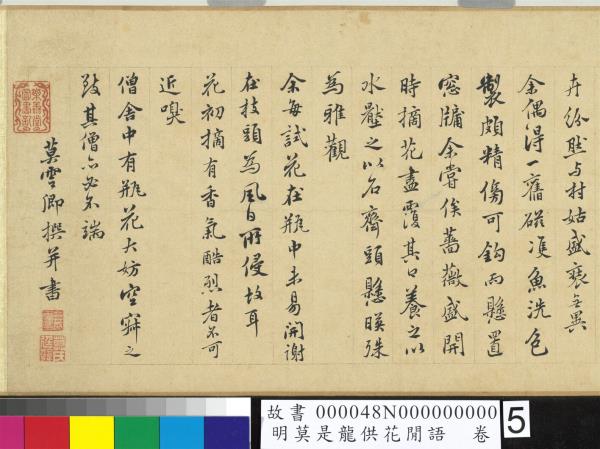 卉紛然与村姑盛裝無異
余偶得一舊磁雙魚洗色
製頗精傷可鈎而懸置
窓牖余嘗俟薔薇盛開
時摘花盡覆其口養之以
水壓之以石齊頭懸暎殊
為雅觀
余每試花在瓶中未易開謝
在枝頭為風日所侵故耳
花初摘有香氣酷烈者不可
近嗅
僧舍中有瓶花大妨空寂之
致其僧亦必不端
莫雲卿撰并書
故書 000048N000000000
明莫是龍供花閒語 卷
5